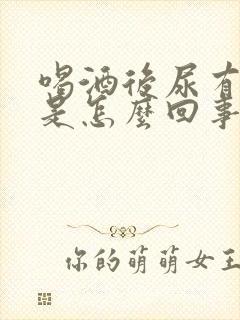 喝酒後尿有
是怎麼回事
你的萌萌女王